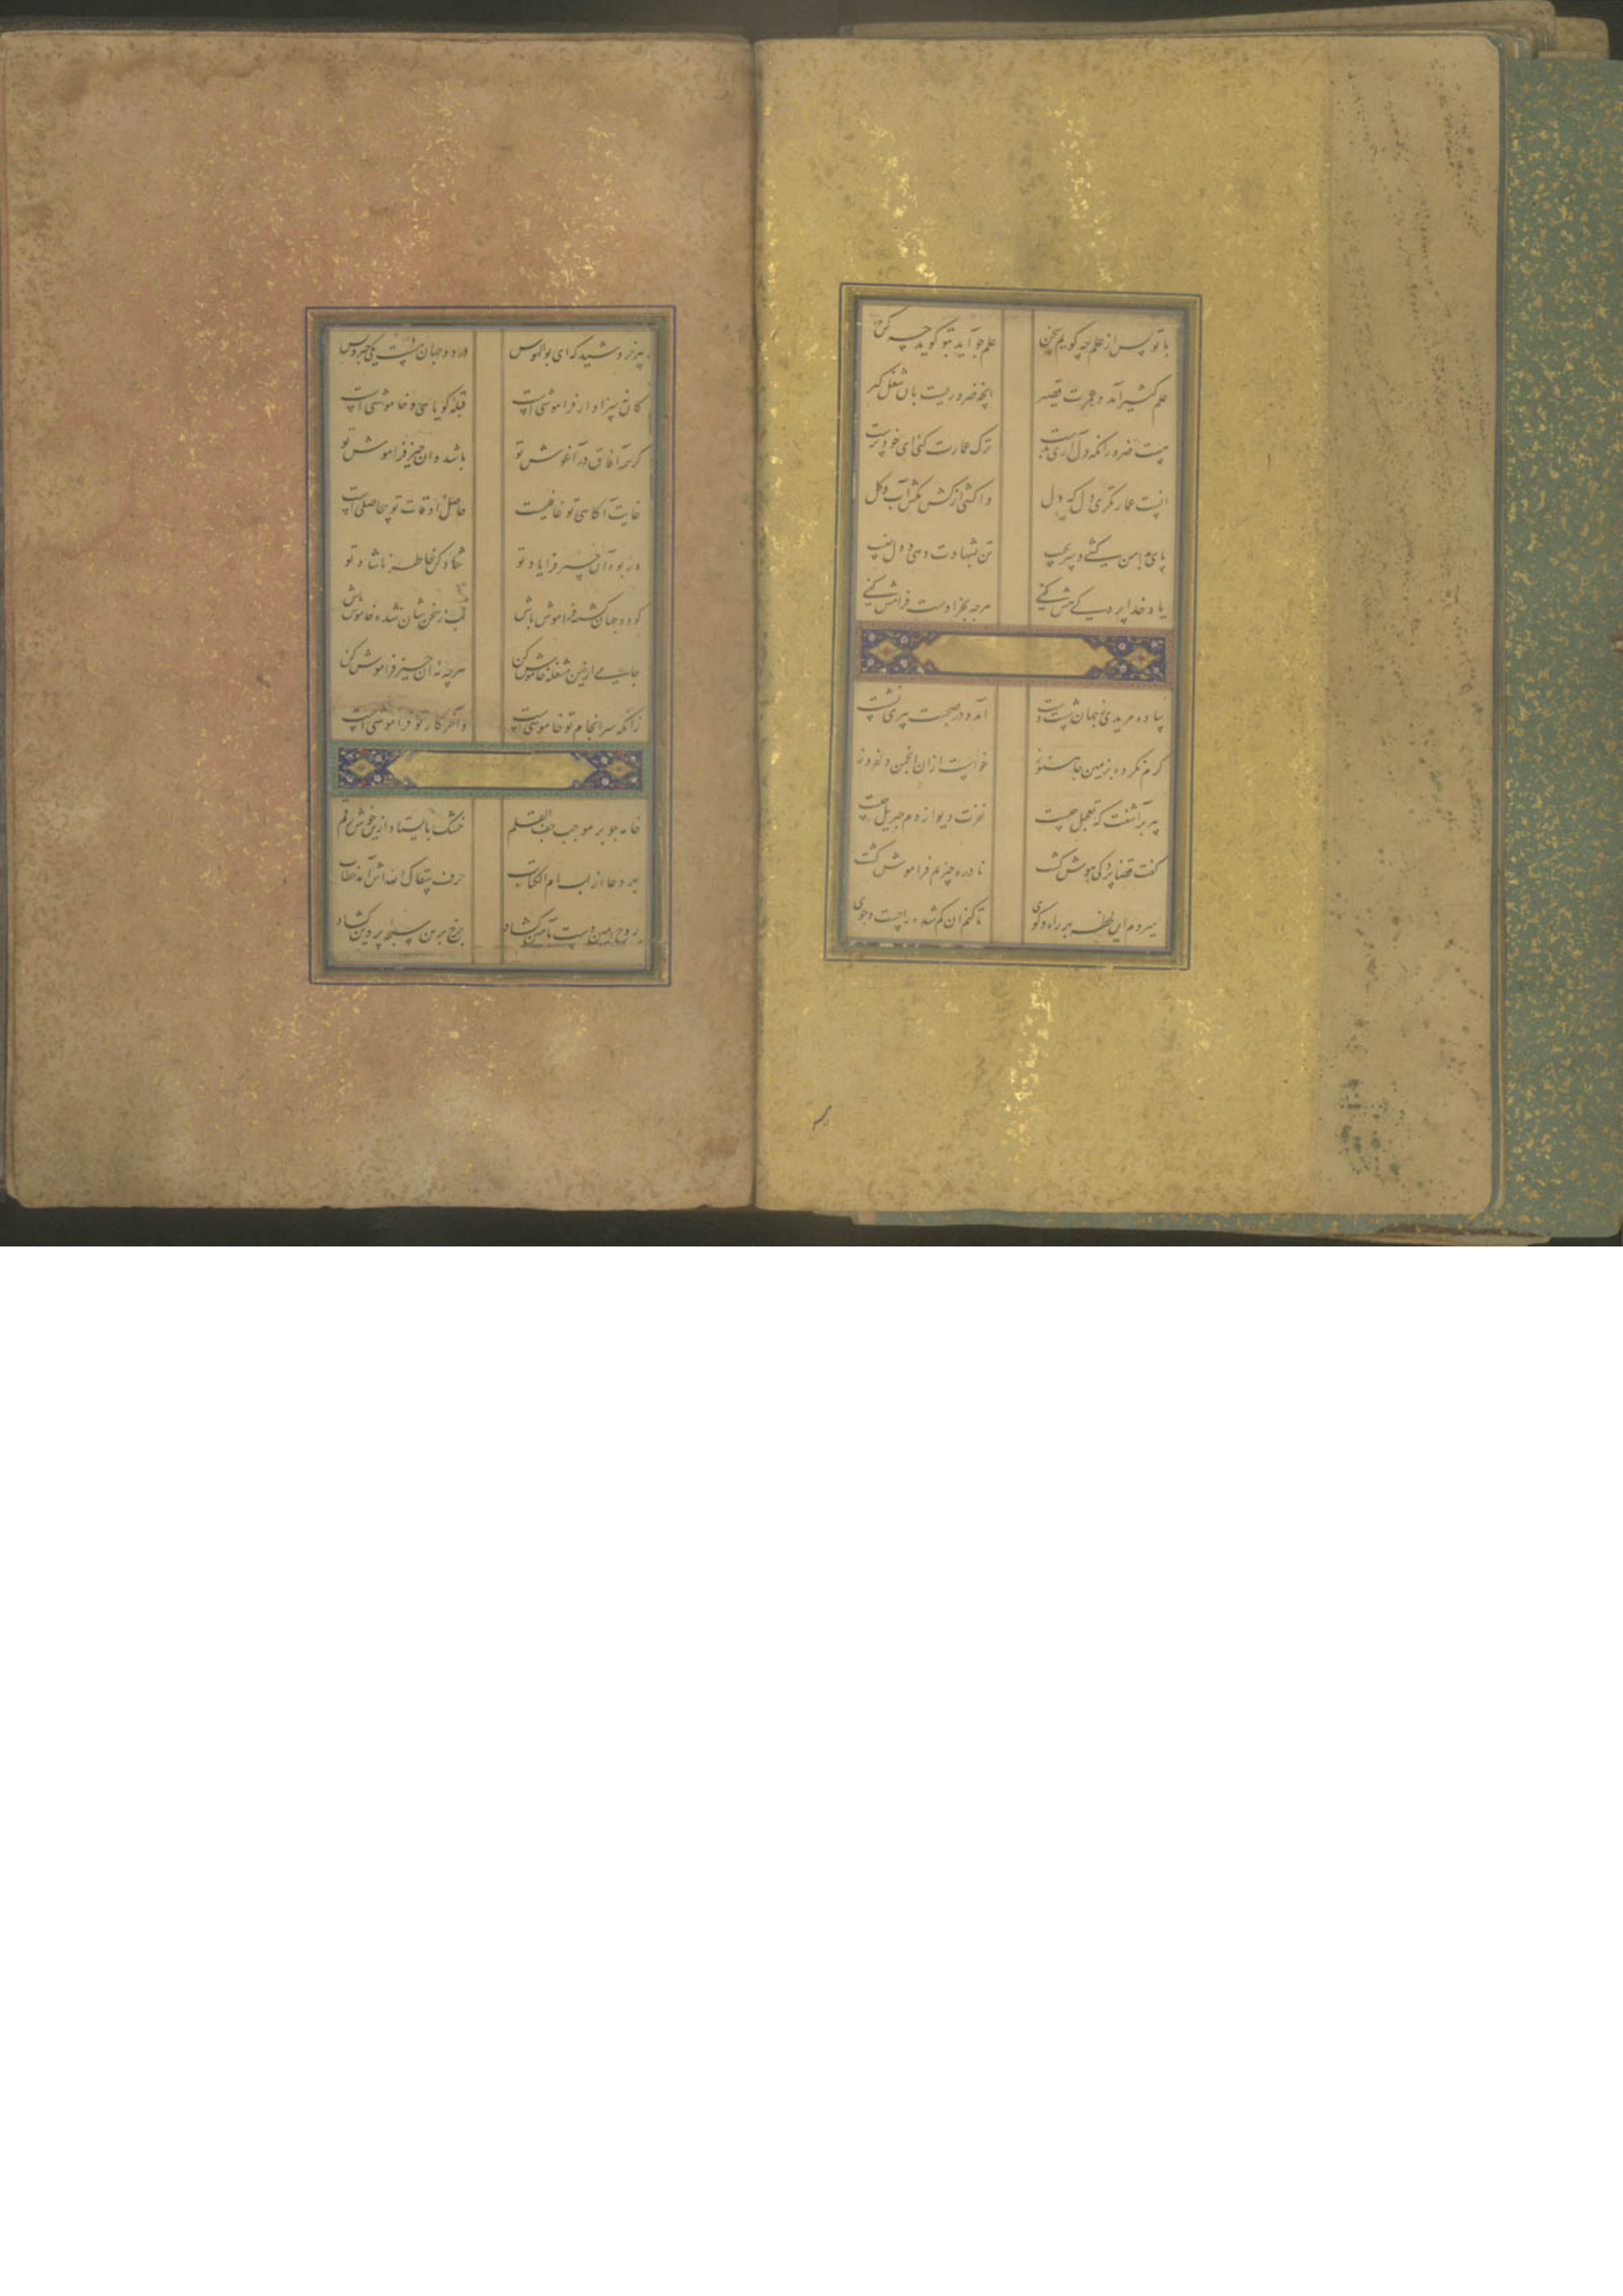 با تو پس از علم چه گویم سخن علم چو آید بتو گوید چه کن
علم کثیر آمد و عمرت قصیر انچه ضروریست بان شغل گیر
نیست ضرور آنکه در آری بدست ترک عمارت کنی ای خودپرست
اینست عمارتگری دل که دل واکشی از کش مکش آب و گل
پای بدامن کشی و سر بجیب تن بشهادت دهی و دل بغیب
یاد خدا پرده کی هش کنی هرچه بجز اوست فرامش کنی
ساده مریدی ز جهان شست دست آمد و در صحبت پیری نشست
گرم نکرده بزمین جا هنوز خواست ازان انجمن دلفروز
پیر برآشفت که تعجیل چیست نفرت دیو از دم جبریل چیست
گفت قضا پردگی هوش گشت نادره چیزیم فراموش گشت
میروم این لحظه بهر راه و کوی تا کنم ان گم شده را جست و جوی
پیر خروشید که ای بوالهوس در دو جهان نیست یکی چیز و بس
کان نه سزاوار فراموشی است قبله گویایی و خاموشی است
گر همه آفاق در آغوش تو باشد و ان چیز فراموش تو
غایت آگاهی تو غافلیست حاصل اوقات تو بیحاصلی است
ور بود آن چیز فرا یاد تو شاد کن خاطر ناشاد تو
گو دو جهان گشته فراموش باش لب ز سخن شان شده خاموش باش
جامی ازین مشغله خاموش کن هرچه نه ان چیز فراموش کن
زانکه سرانجام تو خاموشی است وآخر کار تو فراموشی است
خامه چو بر موجب جف القلم خشک بایستاد ازین خوش رقم
بهر دعا از لب ام الکتاب حرف سقاک الله اش آمد خطاب
روح امین دست بآمین گشاد چرخ برین سبحه پروین گشاد